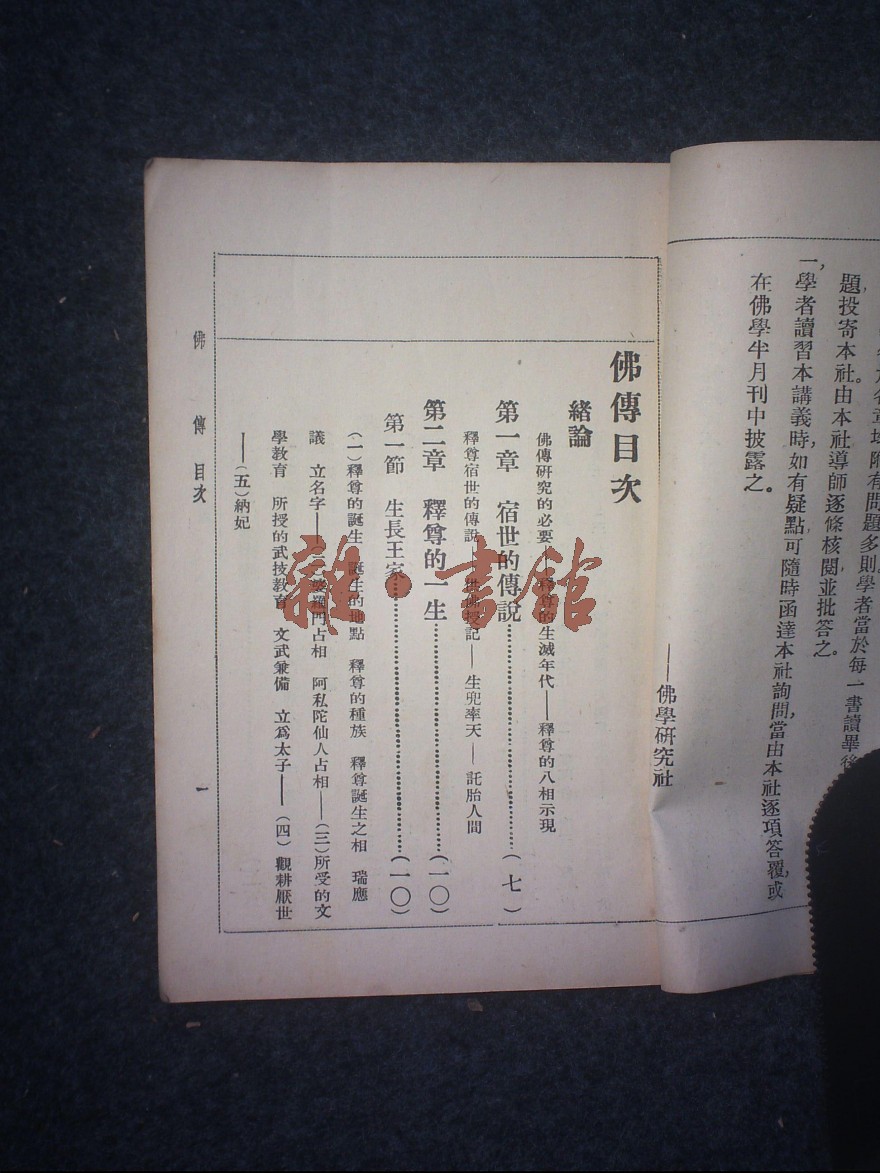 題投寄本社。由本社導師逐條核閱並批答之。
一、學者讀習本講義時，如有疑點，可隨時函達本社詢問，當由本社逐項答覆，或
在佛學半月刊中披露之。
——佛學研究社
佛傳目次
緒論
佛傳研究的必要——釋尊的生滅年代——釋尊的八相示現
第一章　宿世的傳說……………………（七）
釋尊宿世的傳說——供佛授記——生兜率天——託胎人間
第二章　釋尊的一生……………………（一〇）
第一節　生長王家……………………（一〇）
（一）釋尊的誕生　誕生的地點　釋尊的種族　釋尊誕生之相　瑞應
議　立名字——（二）婆羅門占相　阿私陀仙人占相——（三）所受的文
學教育　所授的武技教育　文武兼備　立爲太子——（四）觀耕厭世
——（五）納妃
佛傳目次
一
雜·書館